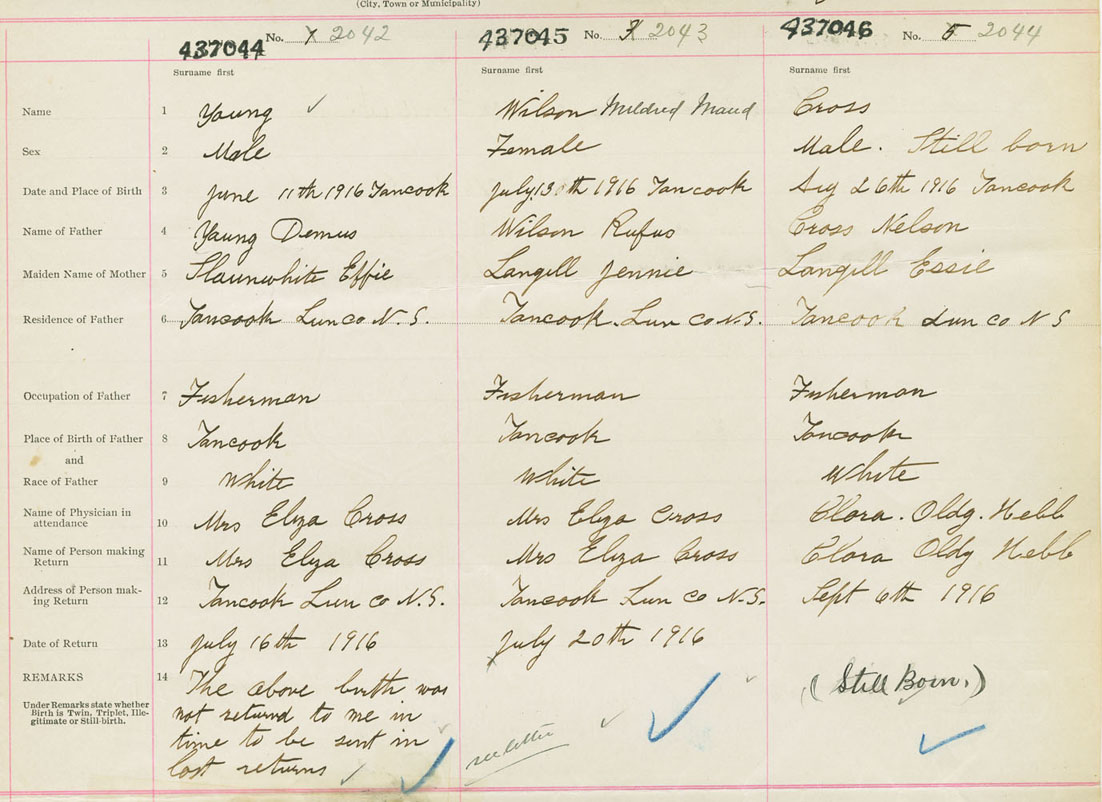 (City, Town or Municipality)
437044 No. 7 2042 437045 No. 7 2043 437046 No. 5 2044
Surname first Surname first Surname first
Name 1 Young Wilson Mildred Maud Cross
Sex 2 Male Female Male. Still born
Date and Place of Birth 3 june 11th 1916 Tancook july 13th 1916 Tancook Aug 26th 1916 Tancook
Name of Father 4 Young Demus Wilson Rufus Cross Nelson
Maiden Name of Mother 5 Slaunwhite Effie Langill Jennie Langill Essie
Residence of Father 6 Tancook Lun co N.S. Tancook. Lun co N.S. Tancook Lun co N S
Occupation of Father 7 Fisherman Fisherman Fisherman
Place of Birth of Father 8 Tancook Tancook Tancook
and
Race of Father 9 White White White
Name of Physician in
attendance 10 Mrs Eliza Cross Mrs Eliza Cross Clora. Oldg. Hebb
Name of Person making
Return 11 Mrs Eliza Cross Mrs Eliza Cross Clora Oldg Hebb
Address of Person mak-
ing Return 12 Tancook Lun co N.S. Tancook Lun co N.S. Sept 6th 1916
Date of Return 13 july 16th 1916 july 20th 1916
REMARKS 14 The above birth was (Still Born.)
Under Remarks state whether
Birth is Twin, Triplet, Ille-
gitimate or Still-birth.
not returnd to me in
time to be sent in
last returns see letter